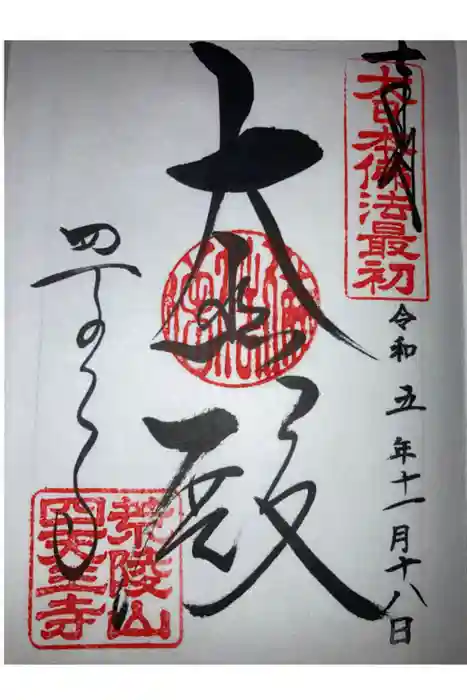 奉拝
大日本佛法最初
令和五年十一月十八日
大悲殿
四天王寺
荒陵山
四天王寺